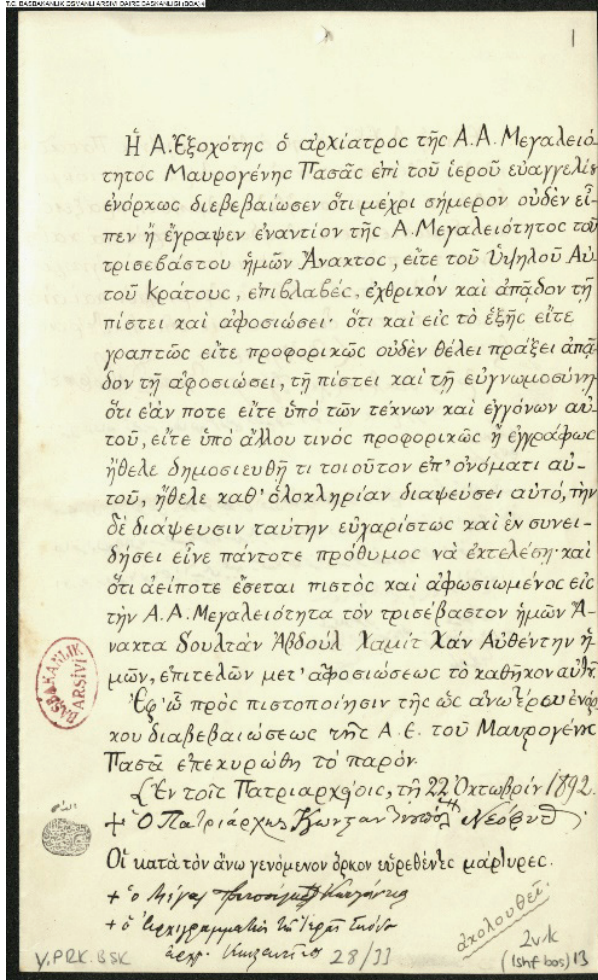 T.C. BAŞBAKANLIK OSMANLI ARŞİVİ DAİRE BAŞKANLIĞI (BOA)
1
Ἡ Α. Ἐξοχότης ὁ ἀρχίατρος τῆς Α.Α. Μεγαλειό-
τητος Μαυρογένης Πασᾶς ἐπὶ τοῦ ἱεροῦ εὐαγγελίου
ἐνόρκως διεβεβαίωσεν ὅτι μέχρι σήμερον οὐδὲν εἶ-
πεν ἢ ἔγραψεν ἐναντίον τῆς Α. Μεγαλειότητος τοῦ
τρισεβάστου ἡμῶν Ἄνακτος, εἴτε τοῦ Ὑψηλοῦ Αὐ-
τοῦ Κράτους, ἐπιβλαβές, ἐχθρικὸν καὶ ἀπᾷδον τῇ
πίστει καὶ ἀφοσιώσει· ὅτι καὶ εἰς τὸ ἑξῆς εἴτε
γραπτῶς εἴτε προφορικῶς οὐδὲν θέλει πράξει ἀπᾷ-
δον τῇ ἀφοσιώσει, τῇ πίστει καὶ τῇ εὐγνωμοσύνῃ·
ὅτι ἐάν ποτε εἴτε ὑπὸ τῶν τέκνων καὶ ἐγγόνων αὐ-
τοῦ, εἴτε ὑπὸ ἄλλου τινὸς προφορικῶς ἢ ἐγγράφως
ἤθελε δημοσιευθῆ τι τοιοῦτον ἐπ' ὀνόματι αὐ-
τοῦ, ἤθελε καθ' ὁλοκληρίαν διαψεύσει αὐτό, τὴν
δὲ διάψευσιν ταύτην εὐχαρίστως καὶ ἐν συνει-
δήσει εἶνε πάντοτε πρόθυμος νὰ ἐκτελέσῃ· καὶ
ὅτι ἀείποτε ἔσεται πιστὸς καὶ ἀφωσιωμένος εἰς
τὴν Α.Α. Μεγαλειότητα τὸν τρισέβαστον ἡμῶν Ἄ-
νακτα Σουλτὰν Ἀβδοὺλ Χαμὶτ Χὰν Αὐθέντην ἡ-
μῶν, ἐπιτελῶν μετ' ἀφοσιώσεως τὸ καθῆκον αὐτοῦ.
Ἐφ' ᾧ πρὸς πιστοποίησιν τῆς ὡς ἄνω ἱερᾶς ἐνόρ-
κου διαβεβαιώσεως τῆς Α.Ε. τοῦ Μαυρογένη
Πασᾶ ἐπεκυρώθη τὸ παρόν.
Ἐν τοῖς Πατριαρχείοις, τῇ 22 Ὀκτωβρίου 1892.
+ Ὁ Πατριάρχης Κωνσταντινουπόλ Νεόφυτ
Οἱ κατὰ τὸν ἄνω γενόμενον ὅρκον εὑρεθέντες μάρτυρες.
+ ὁ Μέγας
+ ὁ Ἀρχιγραμματεὺς τῆς Ἱερᾶς Συνόδου
ἀκολουθεῖ.
BAŞBAKANLIK ARŞİVİ
Y.PRK.BSK
28/33